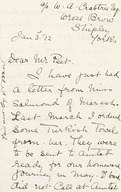 c/o W. A. Crabtree Esq
Wrose Brow
Shipley
Yorks.
Jan 3. 12
Dear Mr Peet.
I have just had
a letter from Miss
Salmond of Marash.
Last March I ordered
some Turkish Towels
from her. They were
to be sent to Aintab
ready for our homeward
journey in May. I
did not call at Aintab